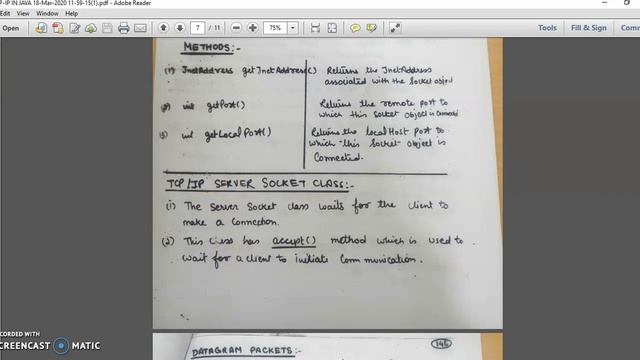 P-IP IN JAVA 18-Mar-2020 11-59-15(1).pdf - Adobe Reader
Open
7 / 11
75%
Tools
Fill & Sign
Comment
METHODS:-
(1) InetAddress getInetAddress()
Returns the InetAddress
associated with the socket object
(2) int getPort()
Returns the remote port to
which this socket object is connected
(3) int getLocalPort()
Returns the localHost port to
which this socket object is
Connected.
TCP/IP SERVER SOCKET CLASS:-
(1) The Server Socket class waits for the client to
make a connection.
(2) This class has accept() method which is used to
wait for a client to initiate communication.
146
DATAGRAM PACKETS:-
CORDED WITH
SCREENCAST MATIC